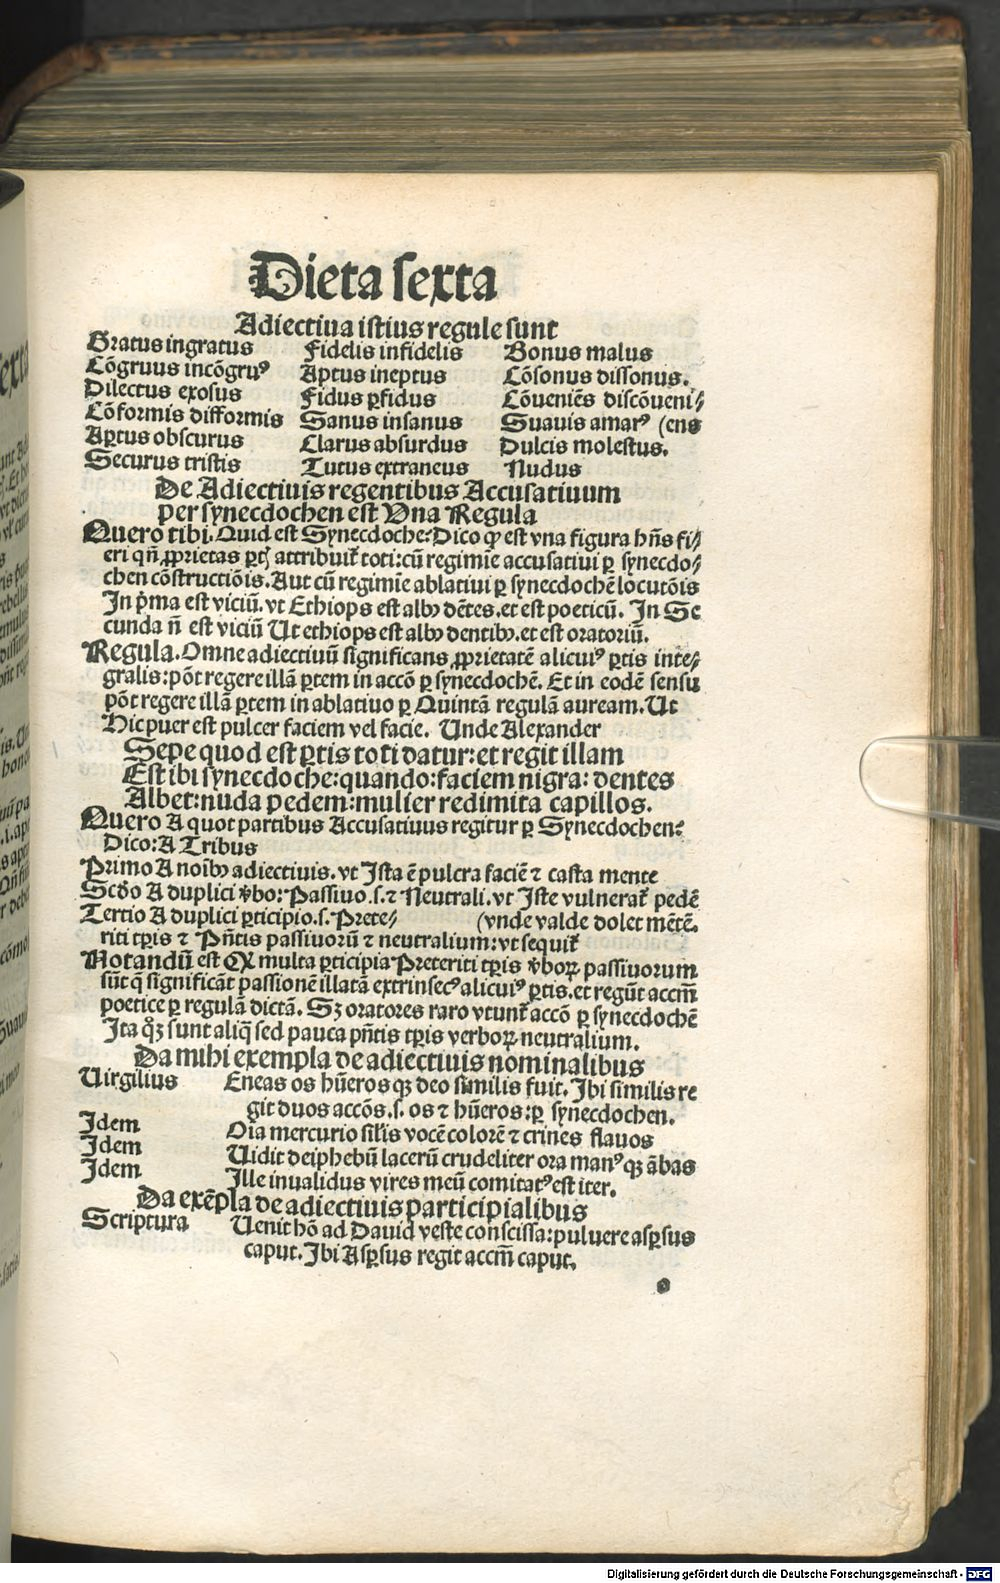 Dieta sexta
Adiectiua istius regule sunt
Gratus ingratus Fidelis infidelis Bonus malus
Cōgruus incōgruꝰ Aptus ineptus Cōsonus dissonus.
Dilectus exosus Fidus ꝑfidus Cōueniēs discōueni⸗
Cōformis difformis Sanus insanus Suauis amarꝰ (ens
Aꝑtus obscurus Clarus absurdus Dulcis molestus.
Securus tristis Tutus extraneus Nudus
De Adiectiuis regentibus Accusatiuum
per synecdochen est Vna Regula
Quero tibi. Quid est Synecdoche? Dico ꝙ est vna figura hn̄s fi⸗
eri qn̄ ꝓprietas ꝑtꝭ attribuit᷑ toti: cū regimīe accusatiui ꝑ synecdo⸗
chen cōstructiōis. Aut cū regimīe ablatiui ꝑ synecdochē locutōis
In pͥma est viciū. vt Ethiops est albꝰ dētes. et est poeticū. In Se
cunda n̄ est viciū Ut ethiops est albꝰ dentibꝰ. et est oratoriū.
Regula. Omne adiectiuū significans ꝓprietatē alicuiꝰ ꝑtis inte⸗
gralis: pōt regere illā ꝑtem in accō ꝑ synecdochē. Et in eodē sensu
pōt regere illā ꝑtem in ablatiuo ꝑ Quintā regulā auream. Ut
Hic puer est pulcer faciem vel facie. Unde Alexander
Sepe quod est ꝑtis toti datur: et regit illam
Est ibi synecdoche: quando: faciem nigra: dentes
Albet: nuda pedem: mulier redimita capillos.
Quero A quot partibus Accusatiuus regitur ꝑ Synecdochen?
Dico: A Tribus
Primo A noībꝰ adiectiuis. vt Ista ē pulcra faciē ⁊ casta mente
Scdo A duplici v̄bo: Passiuo .s. ⁊ Neutrali. vt Iste vulnerat᷑ pedē
Tertio A duplici ꝑticipio .s. Prete⸗ (vnde valde dolet mētē.
riti tꝑis ⁊ Pn̄tis passiuorū ⁊ neutralium: vt sequit᷑
Notandū est Qꝫ multa ꝑticipia Preteriti tꝑis v̄boꝝ passiuorum
sūt q̄ significāt passionē illatā extrinsecꝰ alicuiꝰ ꝑtis. et regūt accm̄
poetice ꝑ regulā dictā. Sꝫ oratores raro vtunt᷑ accō ꝑ synecdochē
Ita qꝫ sunt aliq̄ sed pauca pn̄tis tꝑis verboꝝ neutralium.
Da mihi exempla de adiectiuis nominalibus
Uirgilius Eneas os hūeros qꝫ deo similis fuit. Ibi similis re
git duos accōs. s. os ⁊ hūeros: ꝑ synecdochen.
Idem Oīa mercurio silīs vocē colorē ⁊ crines flauos
Idem Uidit deiphebū lacerū crudeliter ora manꝰ qꝫ ābas
Idem Ille inualidus vires meū comitatꝰ est iter.
Da exēpla de adiectiuis participialibus
Scriptura Uenit hō ad Dauid veste conscissa: puluere asꝑsus
caput. Ibi Asꝑsus regit accm̄ caput.
o
Digitalisierung gefördert durch die Deutsche Forschungsgemeinschaft - DFG